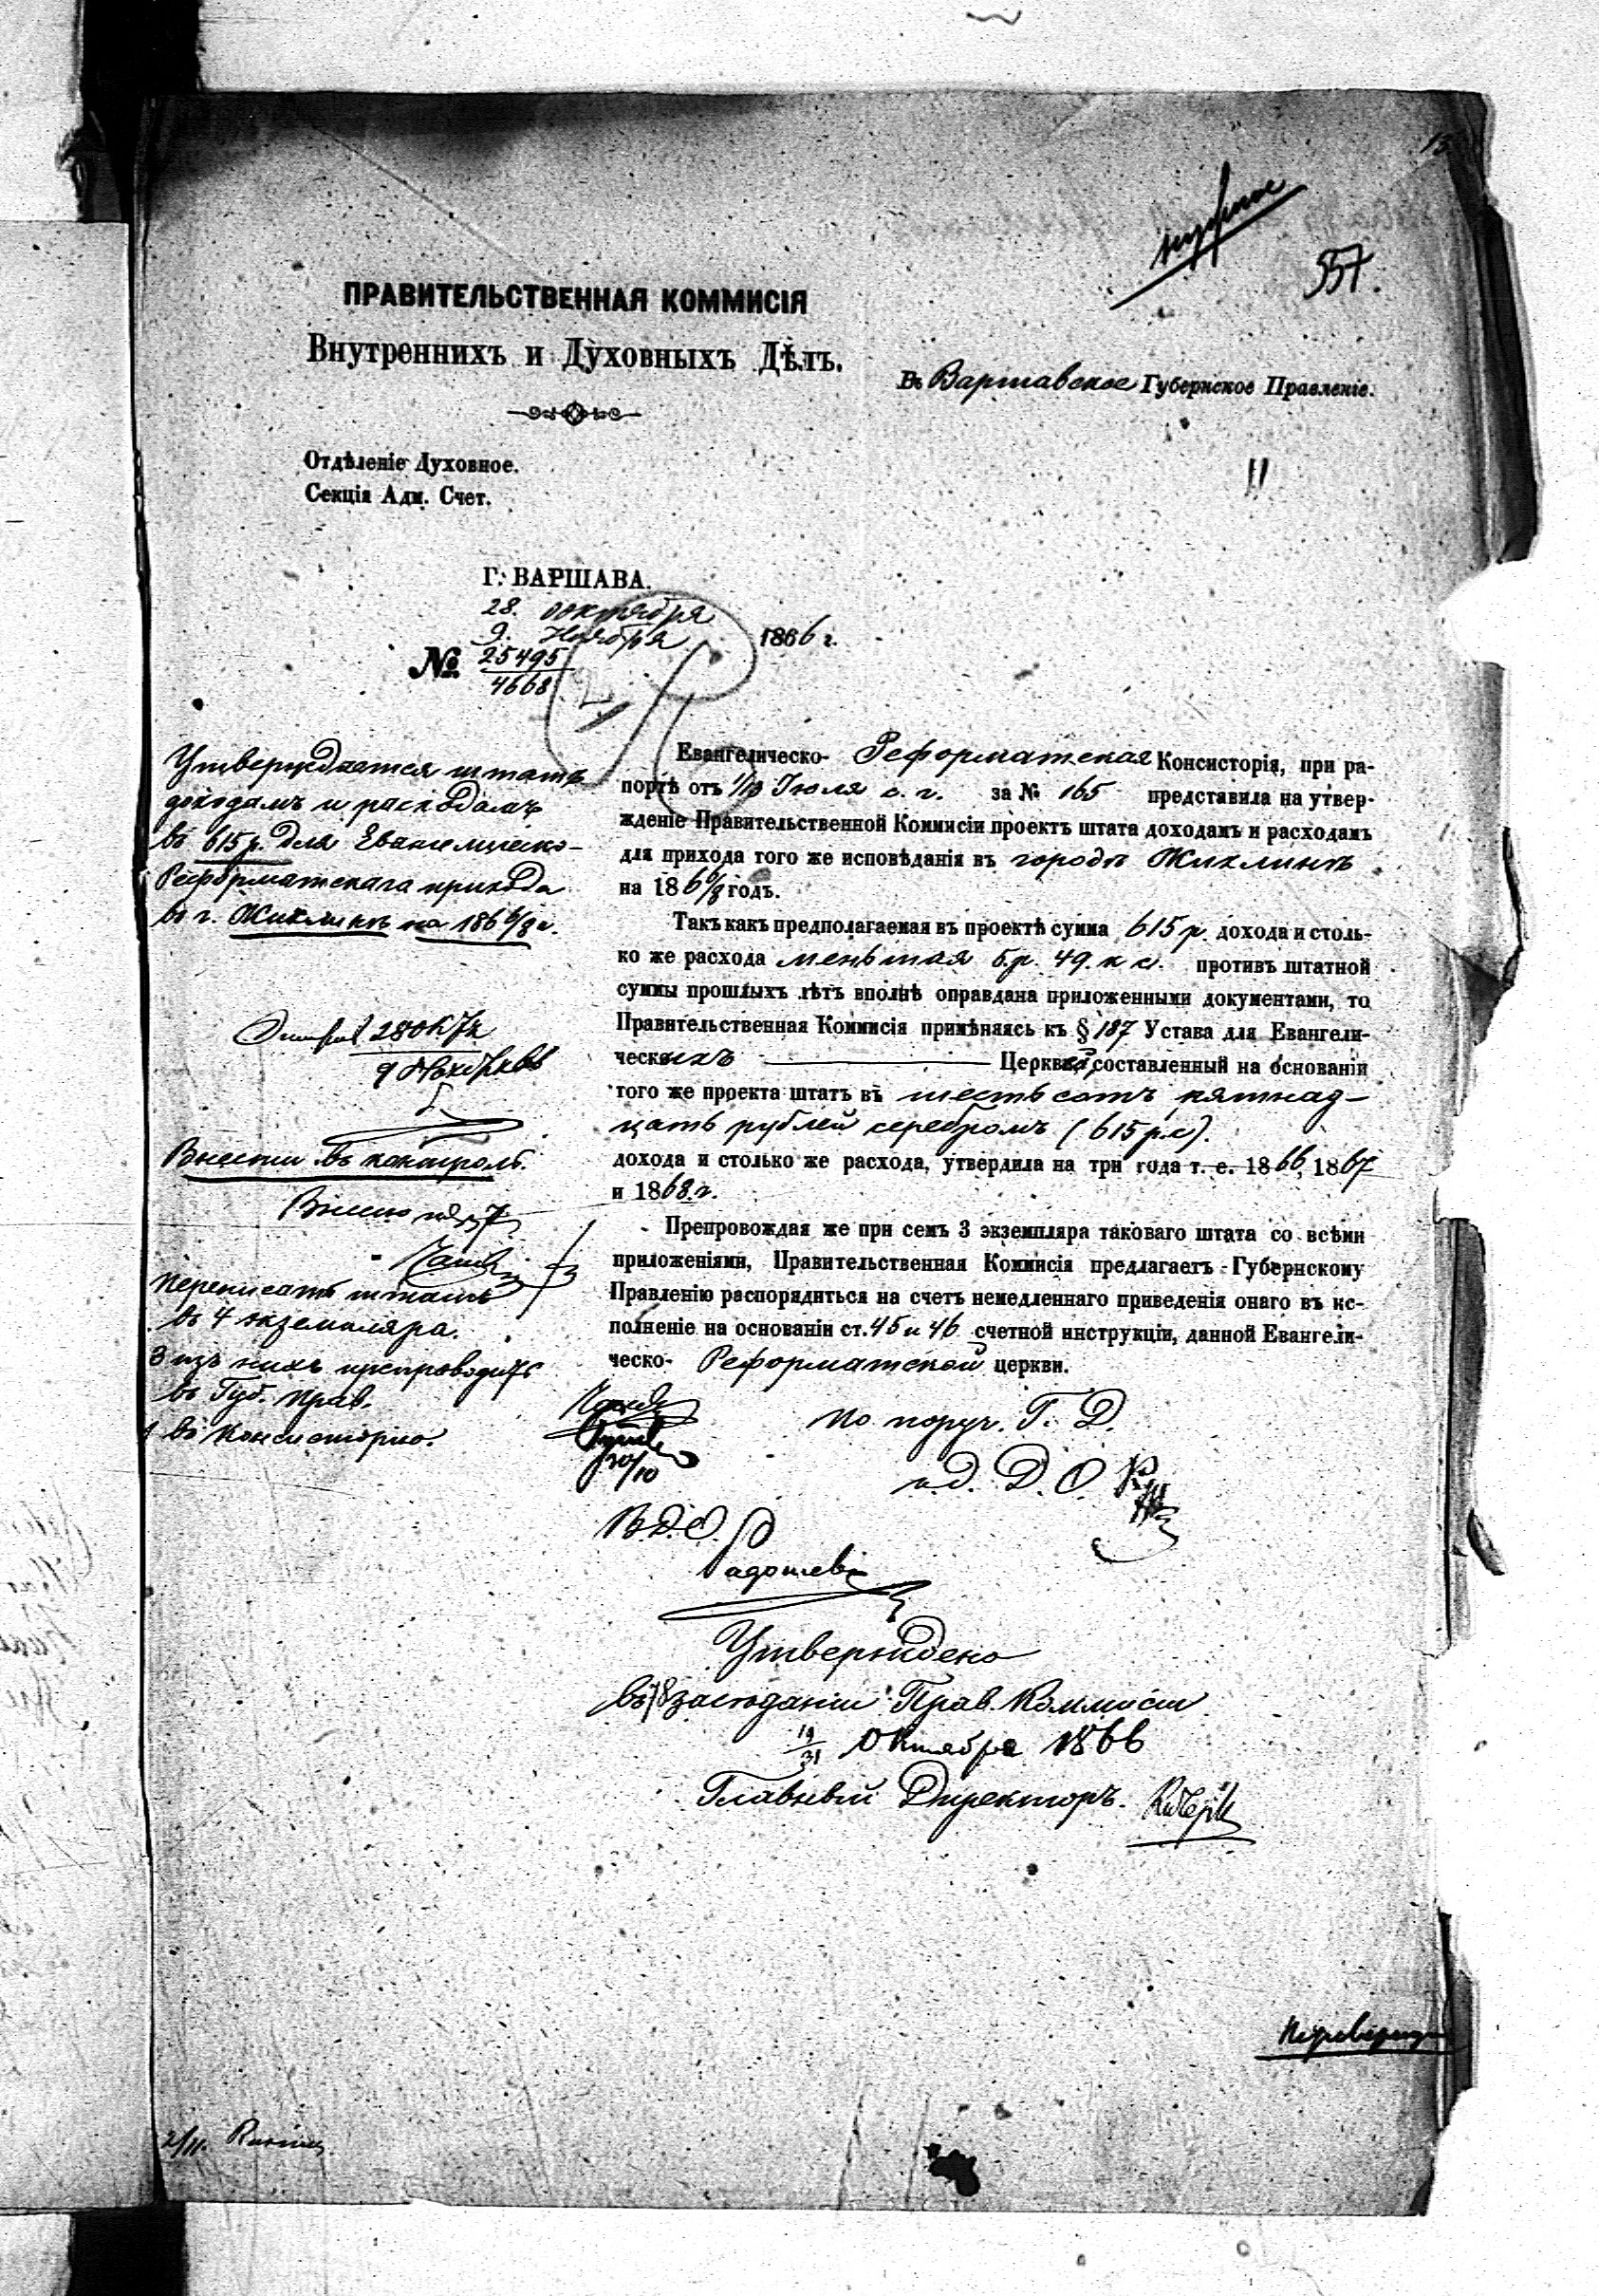 557.
ПРАВИТЕЛЬСТВЕННАЯ КОММИСІЯ
Внутреннихъ и Духовныхъ Дѣлъ.
Въ Варшавское Губернское Правленіе.
Отдѣленіе Духовное.
Секція Адм. Счет.
11
Г. ВАРШАВА.
28. октября
9. Ноября 1866 г.
№ 25495
4668
Утверждается штатъ
доходамъ и расходамъ
въ 615 р. для Евангелическо-
Реформатскаго прихода
въ г. Жихлинѣ на 186 6/8 г.
9 Ноября 66
Внести въ контроль.
Переписать штатъ
въ 4 экземпляра.
3 изъ нихъ препроводить
въ Губ. Прав.
1 въ Консисторію.
Евангелическо- Реформатская Консисторія, при ра-
портѣ отъ 1/13 Іюля с. г. за № 165 представила на утвер-
жденіе Правительственной Коммисіи проектъ штата доходамъ и расходамъ
для прихода того же исповѣданія въ городѣ Жихлинѣ
на 186 6/8 годъ.
Такъ какъ предполагаемая въ проектѣ сумма 615 р. дохода и столь-
ко же расхода меньшая 5.р. 49. к с. противъ штатной
суммы прошлыхъ лѣтъ вполнѣ оправдана приложенными документами, то
Правительственная Коммисія примѣняясь къ § 187 Устава для Евангели-
ческихъ Церквей, составленный на основаніи
того же проекта штатъ въ шестьсотъ пятнад-
цать рублей серебромъ (615 р.с).
дохода и столько же расхода, утвердила на три года т. е. 1866, 1867
и 1868 г.
Препровождая же при семъ 3 экземпляра таковаго штата со всѣми
приложеніями, Правительственная Коммисія предлагаетъ Губернскому
Правленію распорядиться на счетъ немедленнаго приведенія онаго въ ис-
полненіе на основаніи ст. 45 и 46 счетной инструкціи, данной Евангели-
ческо- Реформатской церкви.
По поруч. Г. Д.
и.д. Д. О.
30/10
В.Д.О.
Утверждено
въ 78 засѣданіи Прав. Коммисіи
19/31 Октября 1866
Главный Директоръ.
2/11.